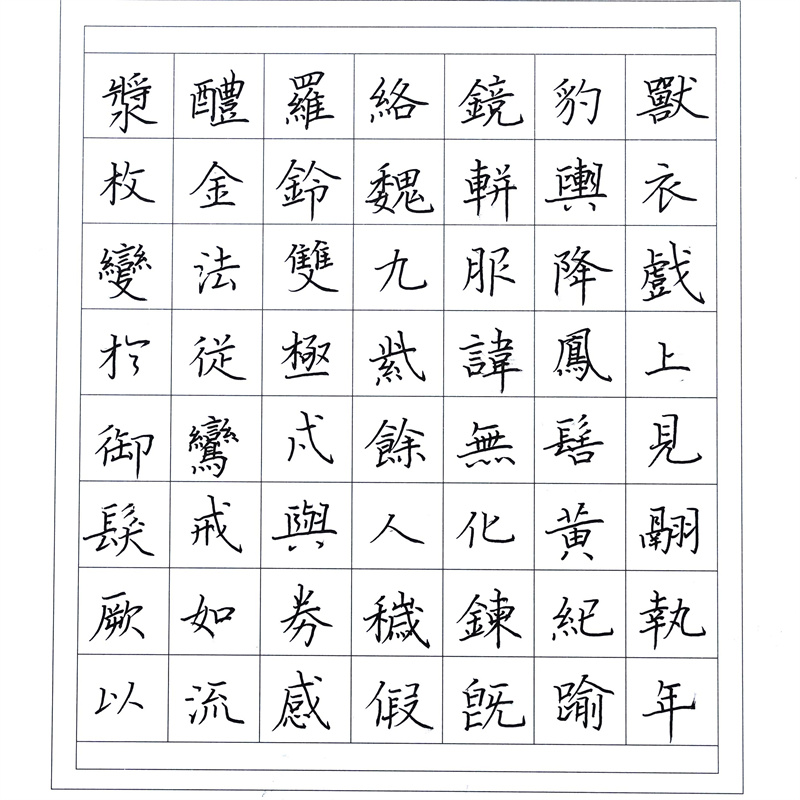 漿醴羅絡鏡豹獸
枚金鈴魏軿輿衣
變法雙九服降戲
於從極紫諱鳳上
御鸞餘無髻見
髮戒與人化黃翮
厥如券穢鍊紀執
以流感假既踰年